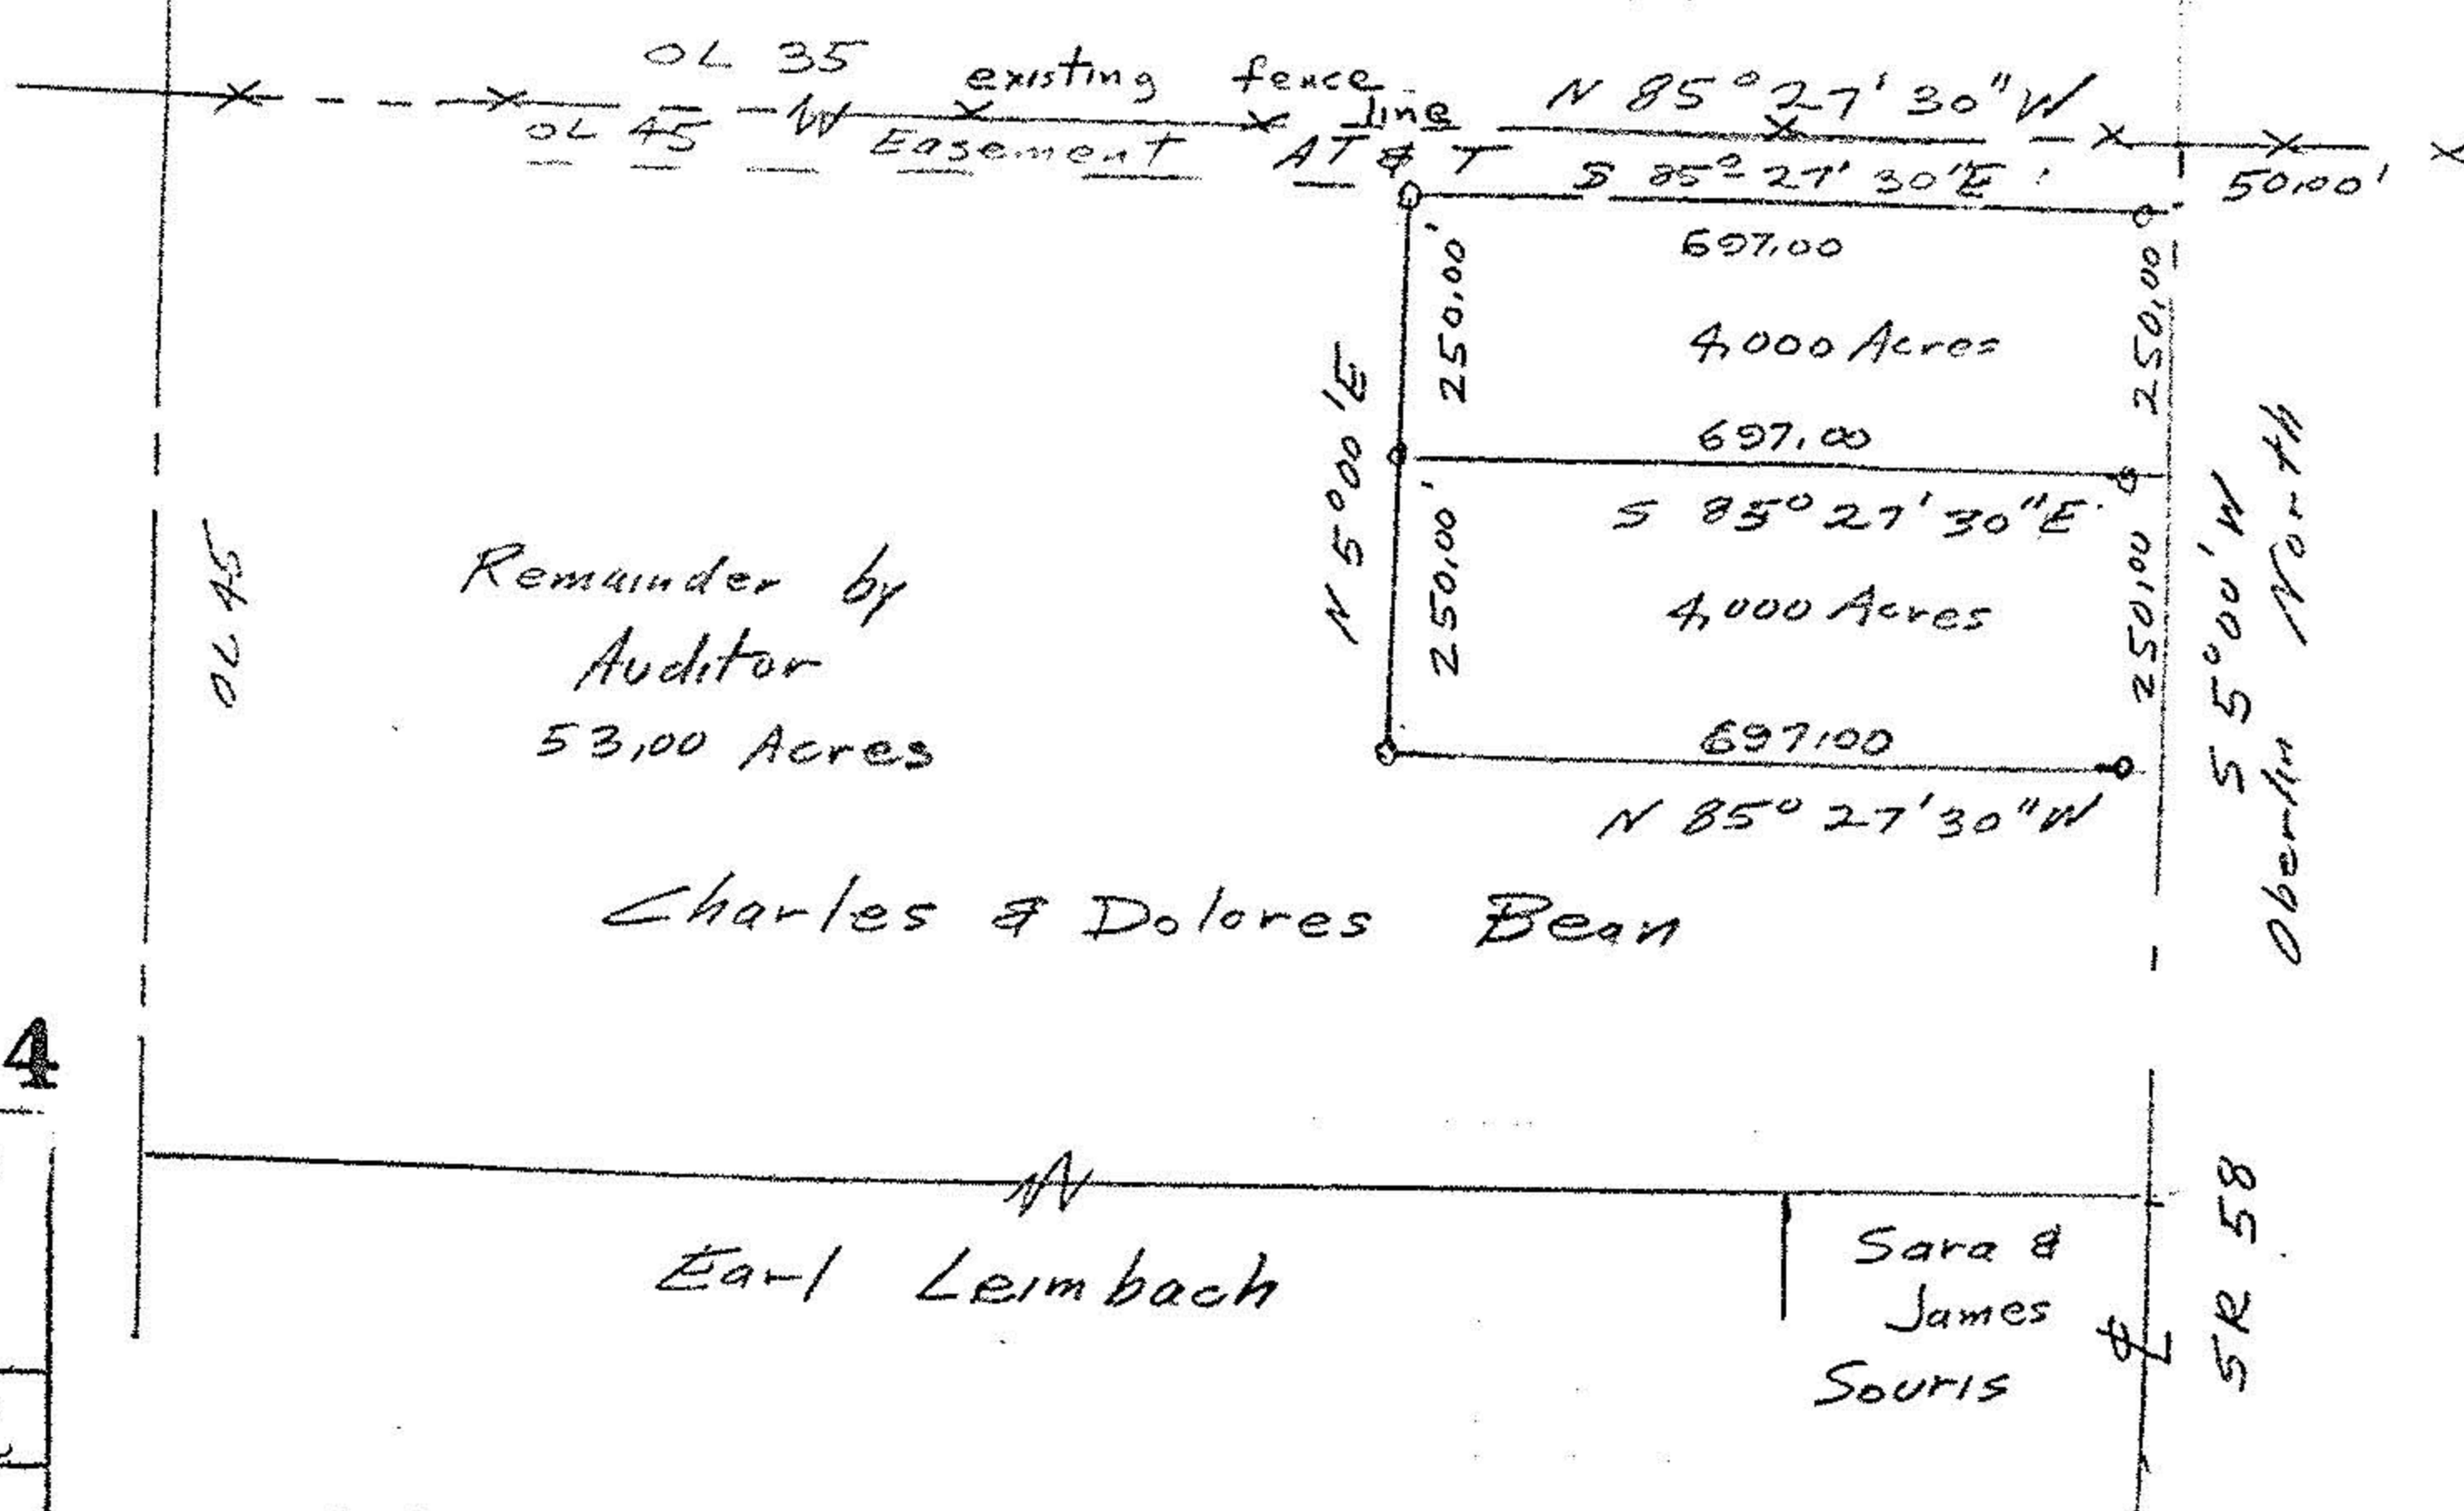 OL 35
existing fence line
N 85° 27' 30" W
OL 45
Easement AT & T
S 85° 27' 30' E
50.00'
697.00
250.00'
250.00'
4.000 Acres
697.00
N 5° 00' E
S 85° 27' 30" E
250.00'
250.00
4.000 Acres
697.00
N 85° 27' 30" W
S 5° 00' W
Oberlin North
OL 45
Remainder by
Auditor
53.00 Acres
Charles & Dolores Bean
4
Earl Leimbach
Sara &
James
Souris
SR 58